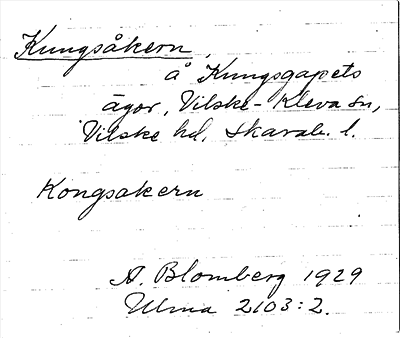 Kungsåkern,
å Kungsgapets
ägor, Vilske-Kleva sn,
Vilske hd, Skarab. l.
Kongsakern
A. Blomberg 1929
Ulma 2103:2.